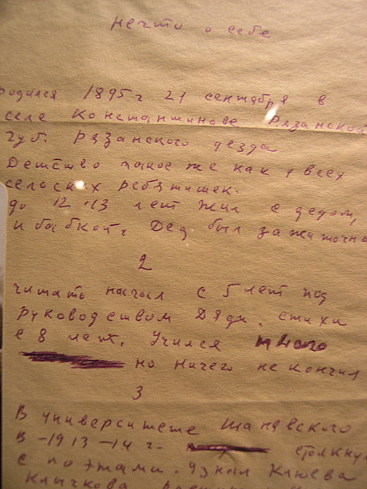 нечто о себе
родился 1895 г 21 сентября в
селе Константинове Рязанской
губ. Рязанского уезда
Детство такое же как у всех
сельских ребятишек.
до 12-13 лет жил с дедом,
и бабкой. Дед был зажиточн
2
читать начал с 5 лет под
руководством дяди. стихи
с 8 лет. Учился много
но ничего не кончил
3
В университете Шанявского
в -1913-14 г. столкну
с поэтами. узнал Клюева
Клычкова